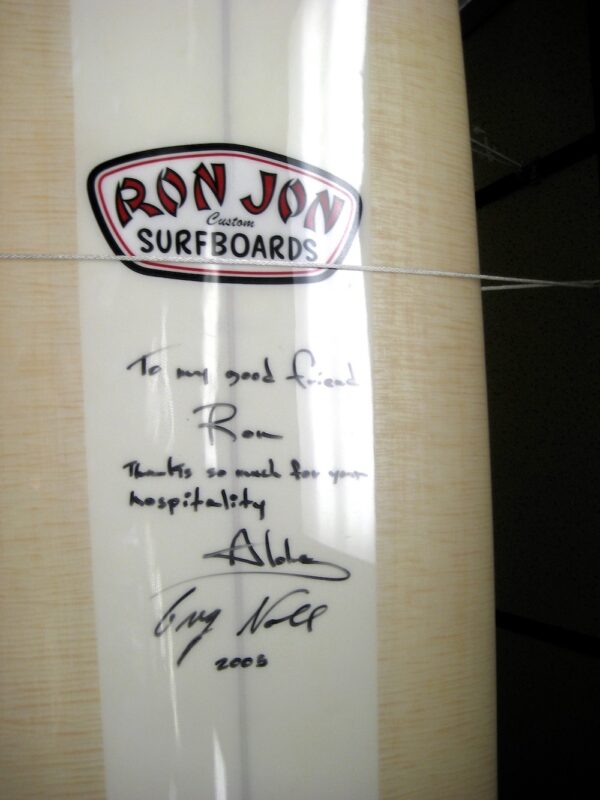 RON JON
Custom
SURFBOARDS
To my good friend
Ron
Thanks so much for your
hospitality
Aloha
Greg Noll
2005